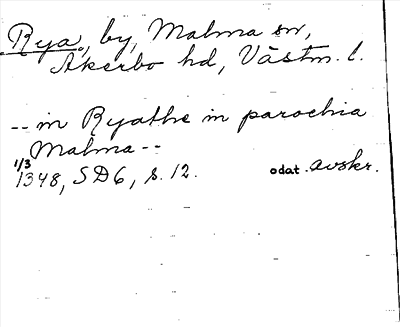 Rya, by, Malma sn,
Åkerbo hd, Västm. l.
-- in Ryathe in parochia
Malma --
1/3
1348, SD6, s. 12. odat. avskr.